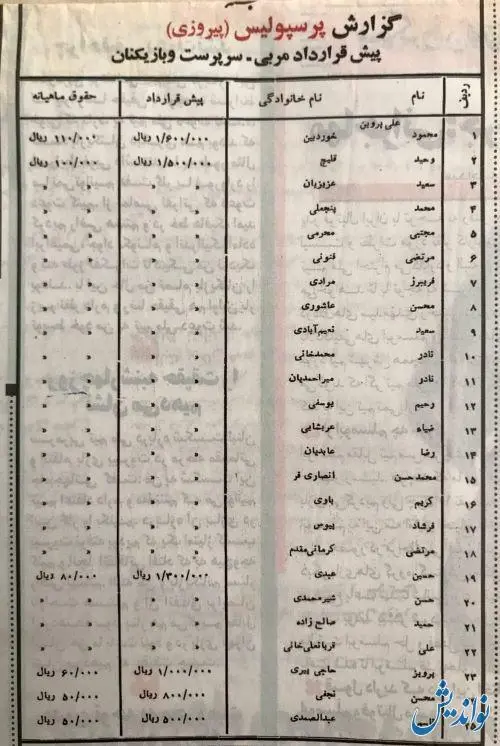 گزارش پرسپولیس (پیروزی)
پیش قرارداد مربی - سرپرست وبازیکنان
ردیف نام نام خانوادگی پیش قرارداد حقوق ماهیانه
علی پروین
۱ محمود خوردبین ۱/۶۰۰/۰۰۰ ریال ۱۱۰/۰۰۰ ریال
۲ وحید قلیچ ۱/۵۰۰/۰۰۰ ریال ۱۰۰/۰۰۰ ریال
۳ سعید عزیزیان » » » »
۴ محمد پنجعلی » » » »
۵ مجتبی محرمی » » » »
۶ مرتضی فنونی » » » »
۷ فریبرز مرادی » » » »
۸ محسن عاشوری » » » »
۹ سعید نعیم‌آبادی » » » »
۱۰ نادر محمدخانی » » » »
۱۱ نادر میراحمدیان » » » »
۱۲ رحیم یوسفی » » » »
۱۳ ضیاء عربشاهی » » » »
۱۴ رضا عابدیان » » » »
۱۵ محمدحسن انصاری فر » » » »
۱۶ کریم باوی » » » »
۱۷ فرشاد پیوس » » » »
۱۸ مرتضی کرمانی‌مقدم » » » »
۱۹ حسین عبدی ۱/۳۰۰/۰۰۰ ریال ۸۰/۰۰۰ ریال
۲۰ حسن شیرمحمدی » » » »
۲۱ حمید صالح زاده » » » »
۲۲ علی قربانعلی‌خانی » » » »
۲۳ پرویز حاجی پیری ۱/۰۰۰/۰۰۰ ریال ۶۰/۰۰۰ ریال
محسن نجفی ۸۰۰/۰۰۰ ریال ۵۰/۰۰۰ ریال
عبدالصمدی ۵۰۰/۰۰۰ ریال ۵۰/۰۰۰ ریال
نواندیش